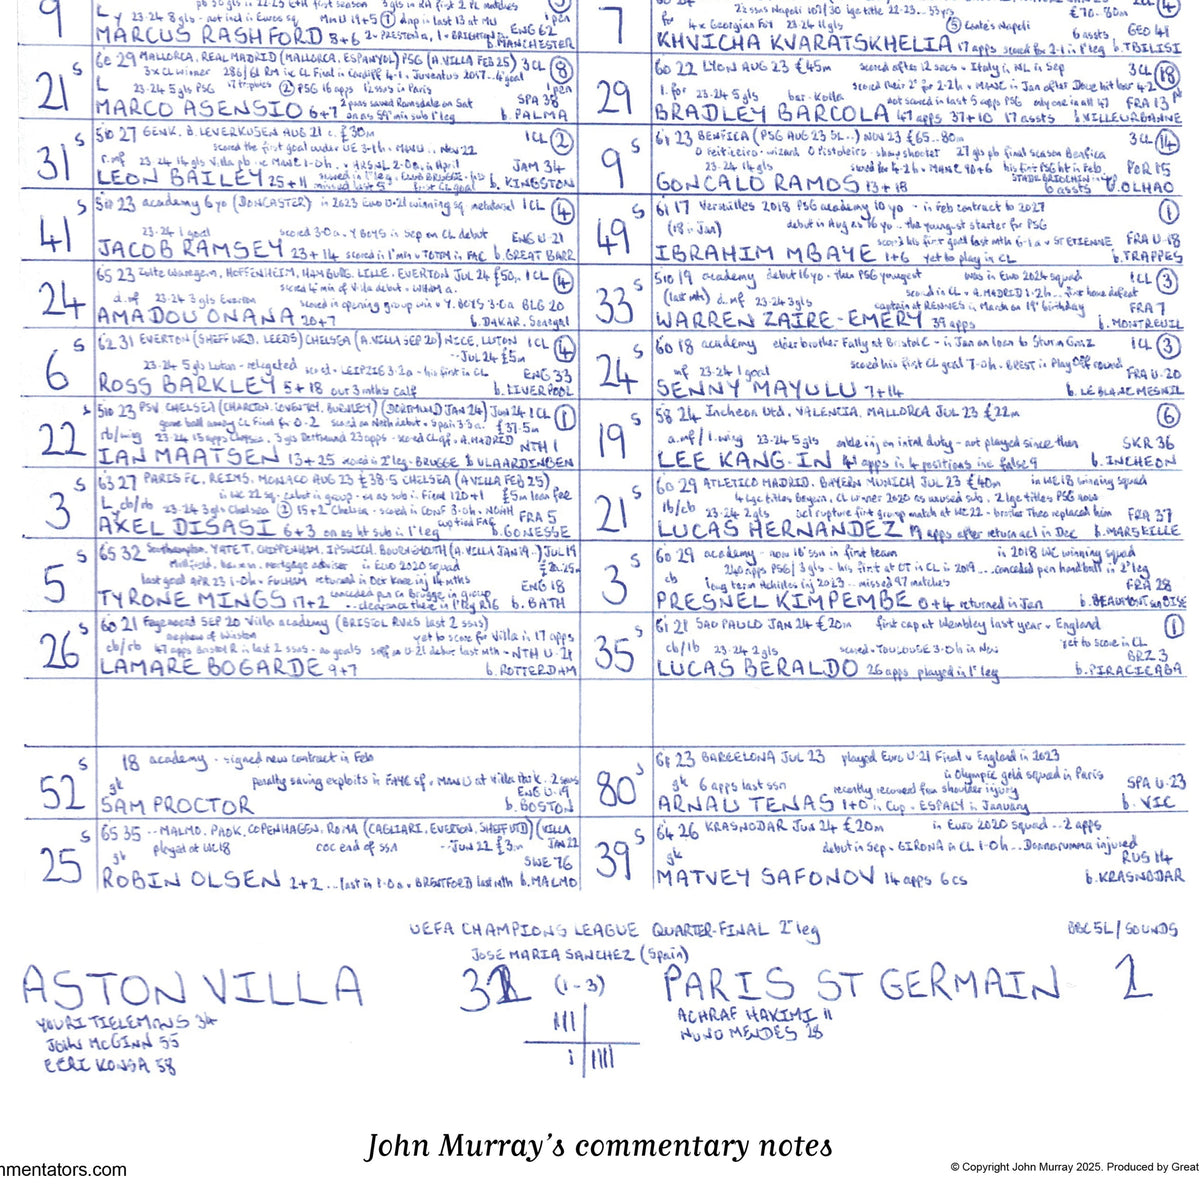 9 L y 23-24 8 gls - not incl in Euros sq MAN U 19+5 drop in last 13 at MU 1 pen
MARCUS RASHFORD 8+6 2 v PRESTON a, 1 v BRIGHTON ENG 62 b. MANCHESTER
21 S 60 29 MALLORCA, REAL MADRID (MALLORCA, ESPANYOL) PSG (A. VILLA FEB 25) 3 CL 8
L 3x CL winner 286/61 RM in CL Final in Cardiff 4-1 v Juventus 2017 - 4th goal 1 pen
23-24 5 gls PSG PSG 16 apps 12 ssns in Paris SPA 38
MARCO ASENSIO 6+7 2 pens saved Ramsdale on Sat on as 59th min sub 1st leg b. PALMA
31 S 5 10 27 GENK, B. LEVERKUSEN AUG 21 c. £30m 1 CL 2
scored the first goal under UE 3-1 h v MAN U .. NOV 22
r.mf 23-24 14 gls Villa pb JAM 34
LEON BAILEY 25+11 b. KINGSTON
41 S 5 10 23 academy 6 yo (DONCASTER) in 2023 Euro U-21 winning sq 1 CL 4
23-24 1 goal scored 3-0 a v Y BOYS in Sep on CL debut ENG U-21
JACOB RAMSEY 23+14 scored in 1st min v TOTM in FAC b. GREAT BARR
24 65 23 Zulte Waregem, HOFFENHEIM, HAMBURG, LILLE, EVERTON JUL 24 £50m 1 CL 4
scored 4th min of Villa debut v WHAM a.
d.mf 23-24 3 gls Everton scored in opening group win v Y. BOYS 3-0 a BLG 20
AMADOU ONANA 20+7 b. DAKAR, Senegal
6 S 62 31 EVERTON (SHEFF WED, LEEDS) CHELSEA (A. VILLA SEP 20) NICE, LUTON 1 CL 4
JUL 24 £5m
23-24 5 gls Luton - relegated scored v LEIPZIG 3-2 a - his first in CL ENG 33
ROSS BARKLEY 5+18 out 3 mths calf b. LIVERPOOL
22 S 5 10 23 PSV CHELSEA (CHARLTON, COVENTRY, BURNLEY) (DORTMUND JAN 24) JUN 24 1 CL 1
£37.5m
lb/wg 23-24 15 apps Chelsea. 3 gls Dortmund 23 apps - scored CL qf v A. MADRID NTH 1
IAN MAATSEN 13+25 scored in 2nd leg v BRUGGE b. VLAARDINGEN
3 S 63 27 PARIS FC, REIMS, MONACO AUG 23 £38.5 CHELSEA (A VILLA FEB 25)
£5m loan fee
L cb/rb 23-24 3 gls Chelsea 15+2 Chelsea - scored in CONF 3-0 h v NOAH FRA 5
AXEL DISASI 6+3 on as ht sub in 1st leg cup tied FAC b. GONESSE
5 S 65 32 Southampton, YATE T, CHIPPENHAM, IPSWICH, BOURNEMOUTH (A. VILLA JAN 19..) JUL 19
mortgage adviser in Euro 2020 squad £20-25m
last goal APR 23 1-0 h v FULHAM returned in Oct knee inj 14 mths ENG 18
TYRONE MINGS 17+2 conceded pen in Brugge in group b. BATH
26 S 60 21 Feyenoord SEP 20 Villa academy (BRISTOL RVRS last 2 ssns)
nephew of Winston yet to score for Villa in 17 apps
cb/rb 47 apps Bristol R in last 2 ssns - no goals NTH U-21
LAMARE BOGARDE 9+7 b. ROTTERDAM
52 S 18 academy - signed new contract in Feb
gk penalty saving exploits in FAYC sf v MAN U at Villa Park ENG U-19
SAM PROCTOR b. BOSTON
25 S 65 35 .. MALMO, PAOK, COPENHAGEN, ROMA (CAGLIARI, EVERTON, SHEFF UTD) (VILLA JAN 22
gk played at WC 18 OOC end of ssn JUN 22 £3m SWE 76
ROBIN OLSEN 2+2 ... last in 1-0 a v BRENTFORD last mth b. MALMO
7 22 ssns Napoli 107/30 lge title 22-23 £70-80m 4
for 4x Georgian FOY 23-24 11 gls 6 assts GEO 41
KHVICHA KVARATSKHELIA 17 apps scored for 2-1 in 1st leg b. TBILISI
29 60 22 LYON AUG 23 €45m scored after 12 secs v Italy in NL in Sep 3 CL 18
l. for 23-24 5 gls FRA 13
BRADLEY BARCOLA 47 apps 37+10 17 assts b. VILLEURBANNE
9 S 61 23 BENFICA (PSG AUG 23 SL..) NOV 23 €65..80m 3 CL 14
O feiticeiro - wizard O Pistoleiro - sharp shooter 27 gls pb final season Benfica
23-24 14 gls scored for 4-2 h v MAN C 10+6 POR 15
GONCALO RAMOS 13+18 6 assts b. OLHAO
49 S 61 17 Versailles 2018 PSG academy 10 yo - in Feb contract to 2027 1
(18 in Jan) debut in Aug as 16 yo - the youngest starter for PSG
scored his first goal last mth 6-1 a v ST ETIENNE FRA U-18
IBRAHIM MBAYE 1+6 yet to play in CL b. TRAPPES
33 S 5 10 19 academy debut 16 yo - then PSG youngest was in Euro 2024 squad 1 CL 3
scored in CL v A. MADRID 1-2 h ... first home defeat
(last mth) d.mf 23-24 3 gls captain at RENNES in March on 19th birthday FRA 7
WARREN ZAIRE-EMERY 39 apps b. MONTREUIL
24 S 60 18 academy elder brother Fally at Bristol C - in Jan on loan to Sturm Graz 1 CL 3
mf 23-24 1 goal scored his first CL goal 7-0 h v BREST in Play Off round FRA U-20
SENNY MAYULU 7+14 b. LE BLANC MESNIL
19 S 58 24 Incheon Utd, VALENCIA, MALLORCA JUL 23 £22m 6
a.mf / l.wing 23-24 5 gls ankle inj on intnl duty - not played since then SKR 36
LEE KANG-IN 41 apps in 4 positions inc false 9 b. INCHEON
21 S 60 29 ATLETICO MADRID, BAYERN MUNICH JUL 23 £40m in WC 18 winning squad
4 lge titles Bayern, CL winner 2020 as unused sub, 2 lge titles PSG now
lb/cb 23-24 2 gls acl rupture first group match at WC 22 - brother Theo replaced him FRA 37
LUCAS HERNANDEZ 19 apps after return acl in Dec b. MARSEILLE
3 S 60 29 academy - now 10th ssn in first team in 2018 WC winning squad
240 apps PSG / 3 gls - his first at OT in CL in 2019 ... conceded pen handball in 2nd leg
cb long term Achilles inj 2023 .. missed 97 matches FRA 28
PRESNEL KIMPEMBE 0+4 returned in Jan b. BEAUMONT sur OISE
35 S 61 21 SAO PAULO JAN 24 £20m first cap at Wembley last year v England 1
cb/lb 23-24 2 gls scored v TOULOUSE 3-0 h in Nov yet to score in CL BRZ 3
LUCAS BERALDO 26 apps played in 1st leg b. PIRACICABA
80 S 61 23 BARCELONA JUL 23 played Euro U-21 Final v England in 2023
in Olympic gold squad in Paris
gk 6 apps last ssn recently recovered from shoulder injury SPA U-23
ARNAU TENAS 1+0 in Cup v ESPALY in January b. VIC
39 S 64 26 KRASNODAR JUN 24 £20m in Euro 2020 squad .. 2 apps
gk debut in Sep v GIRONA in CL 1-0 h ... Donnarumma injured RUS 14
MATVEY SAFONOV 14 apps 6 cs b. KRASNODAR
UEFA CHAMPIONS LEAGUE QUARTER-FINAL 2nd leg BBC 5L / SOUNDS
JOSE MARIA SANCHEZ (Spain)
ASTON VILLA 3 2 (1-3) PARIS ST GERMAIN 2
YOURI TIELEMANS 34
JOHN McGINN 55
EZRI KONSA 58
ACHRAF HAKIMI 11
NUNO MENDES 28
John Murray's commentary notes
nmentators.com
© Copyright John Murray 2025. Produced by Great